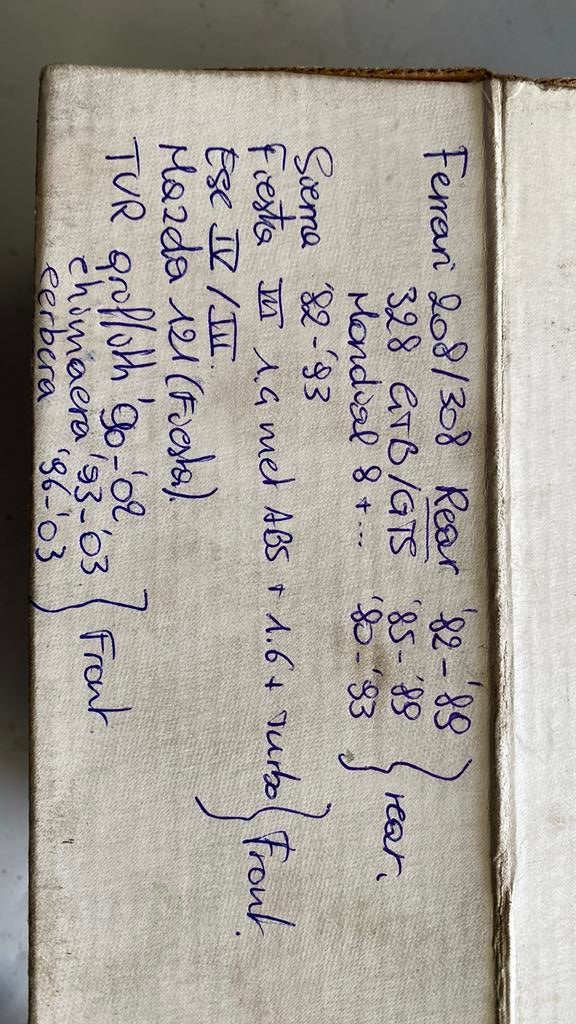 Ferrari 208/308 Rear '82-'89
328 GTB/GTS '85-'89
Mondial 8 + ... '80-'93 } rear.
Sierra '82-'93
Fiesta III 1.4 met ABS + 1.6 + Turbo
Esc IV / III.
Mazda 121 (Fiesta). } Front.
TVR griffith '90-'02
chimaera '93-'03
cerbera '96-'03 } Front